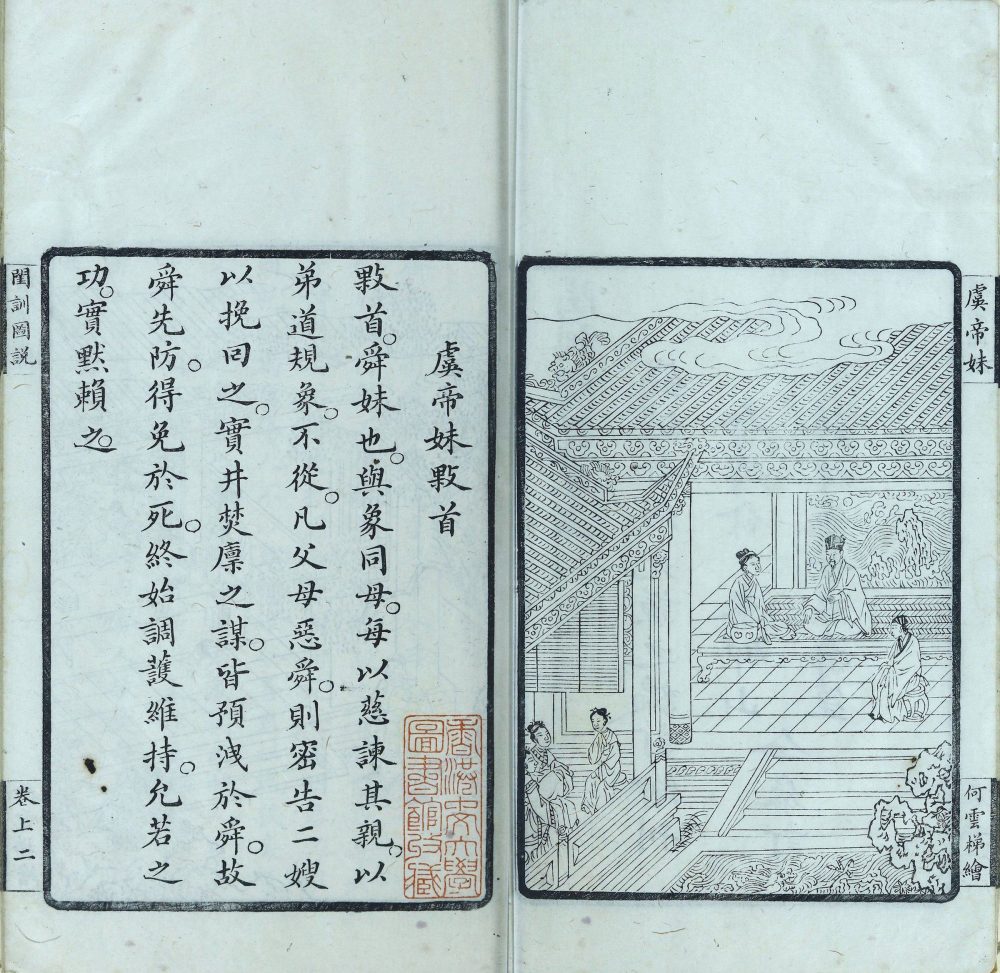 虞帝妹
何雲梯繪
虞帝妹敤首
敤首。舜妹也。與象同母。每以慈諫其親。以
弟道規象。不從。凡父母惡舜。則密告二嫂
以挽回之。實井焚廩之謀。皆預洩於舜。故
舜先防。得免於死。終始調護維持。允若之
功。實默賴之。
香港中文大學
圖書館收藏
閨訓圖説
卷上二